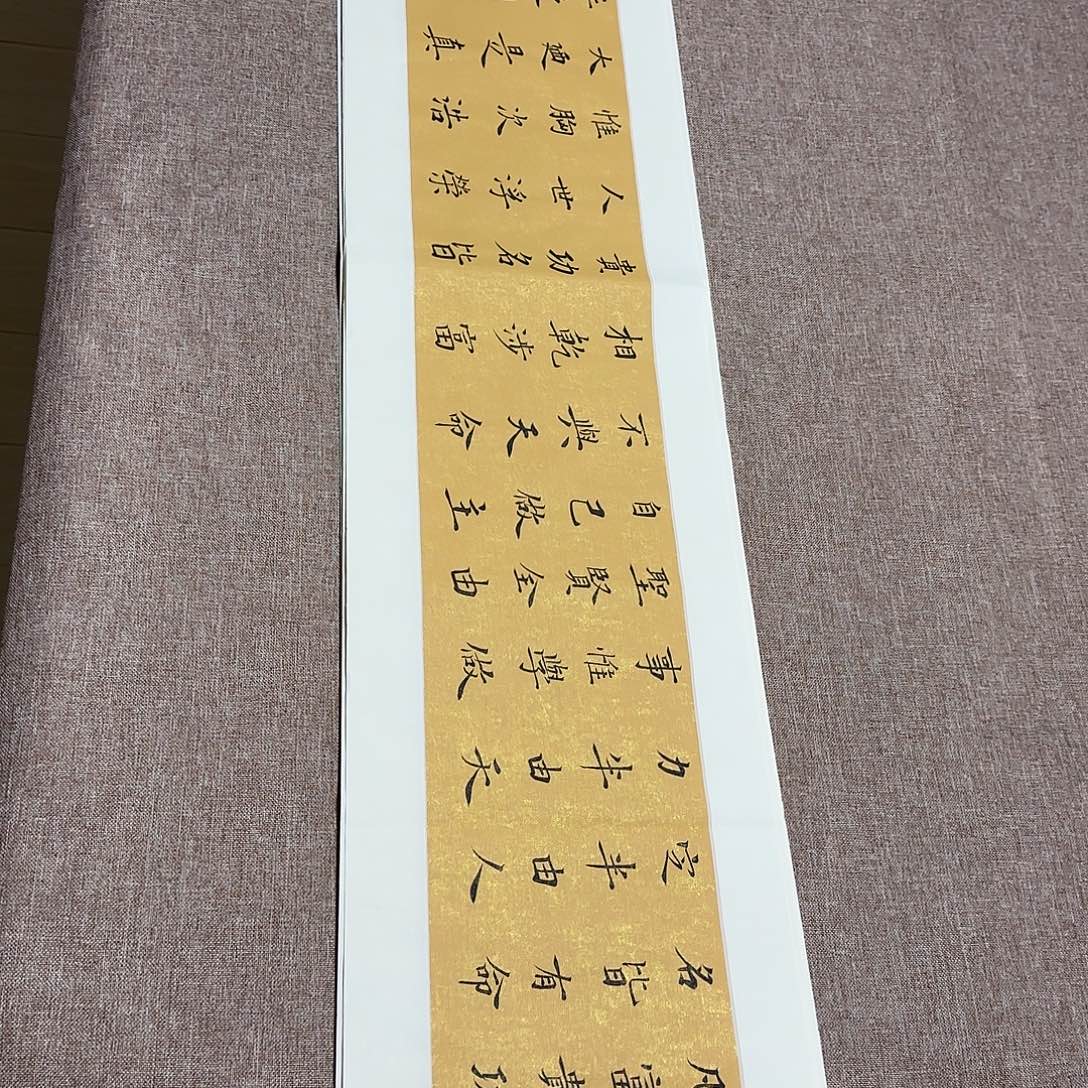 凡富貴功
名皆有命
定半由人
力半由天
事惟學做
聖賢全由
自己做主
不與天命
相乾涉富
貴功名皆
人世浮榮
惟胸次浩
大迺是真